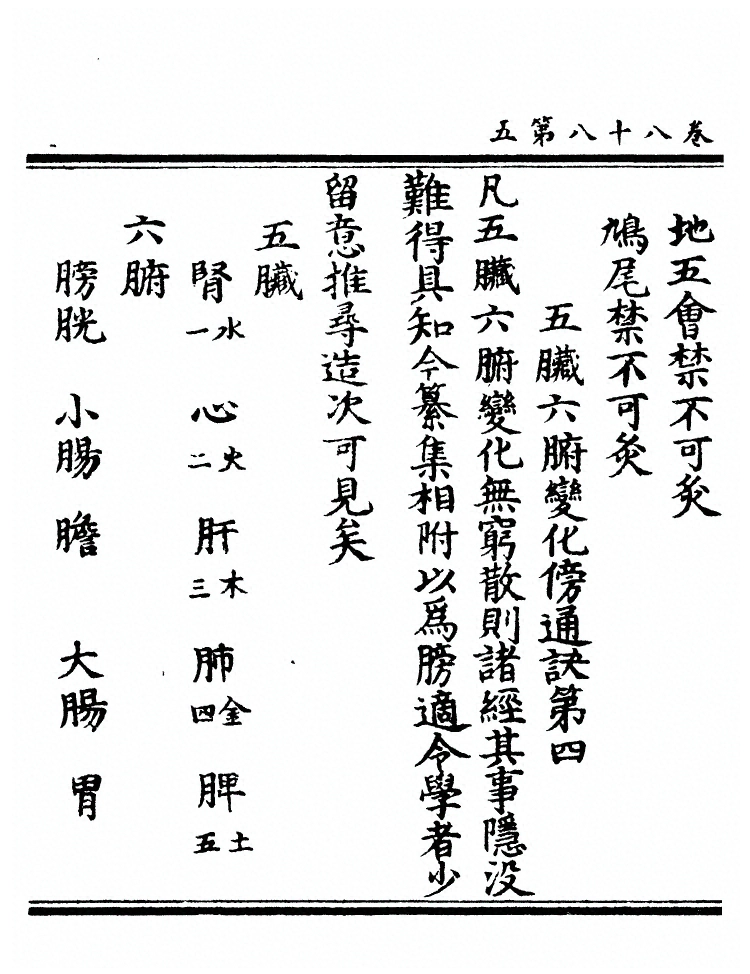 卷八十八第五
地五會禁不可灸
鳩尾禁不可灸
五臟六腑變化傍通訣第四
凡五臟六腑變化無窮散則諸經其事隱没
難得具知今纂集相附以爲膀適令學者少
留意推尋造次可見矣
五臟
腎水一 心火二 肝木三 肺金四 脾土五
六腑
膀胱 小腸 膽 大腸 胃